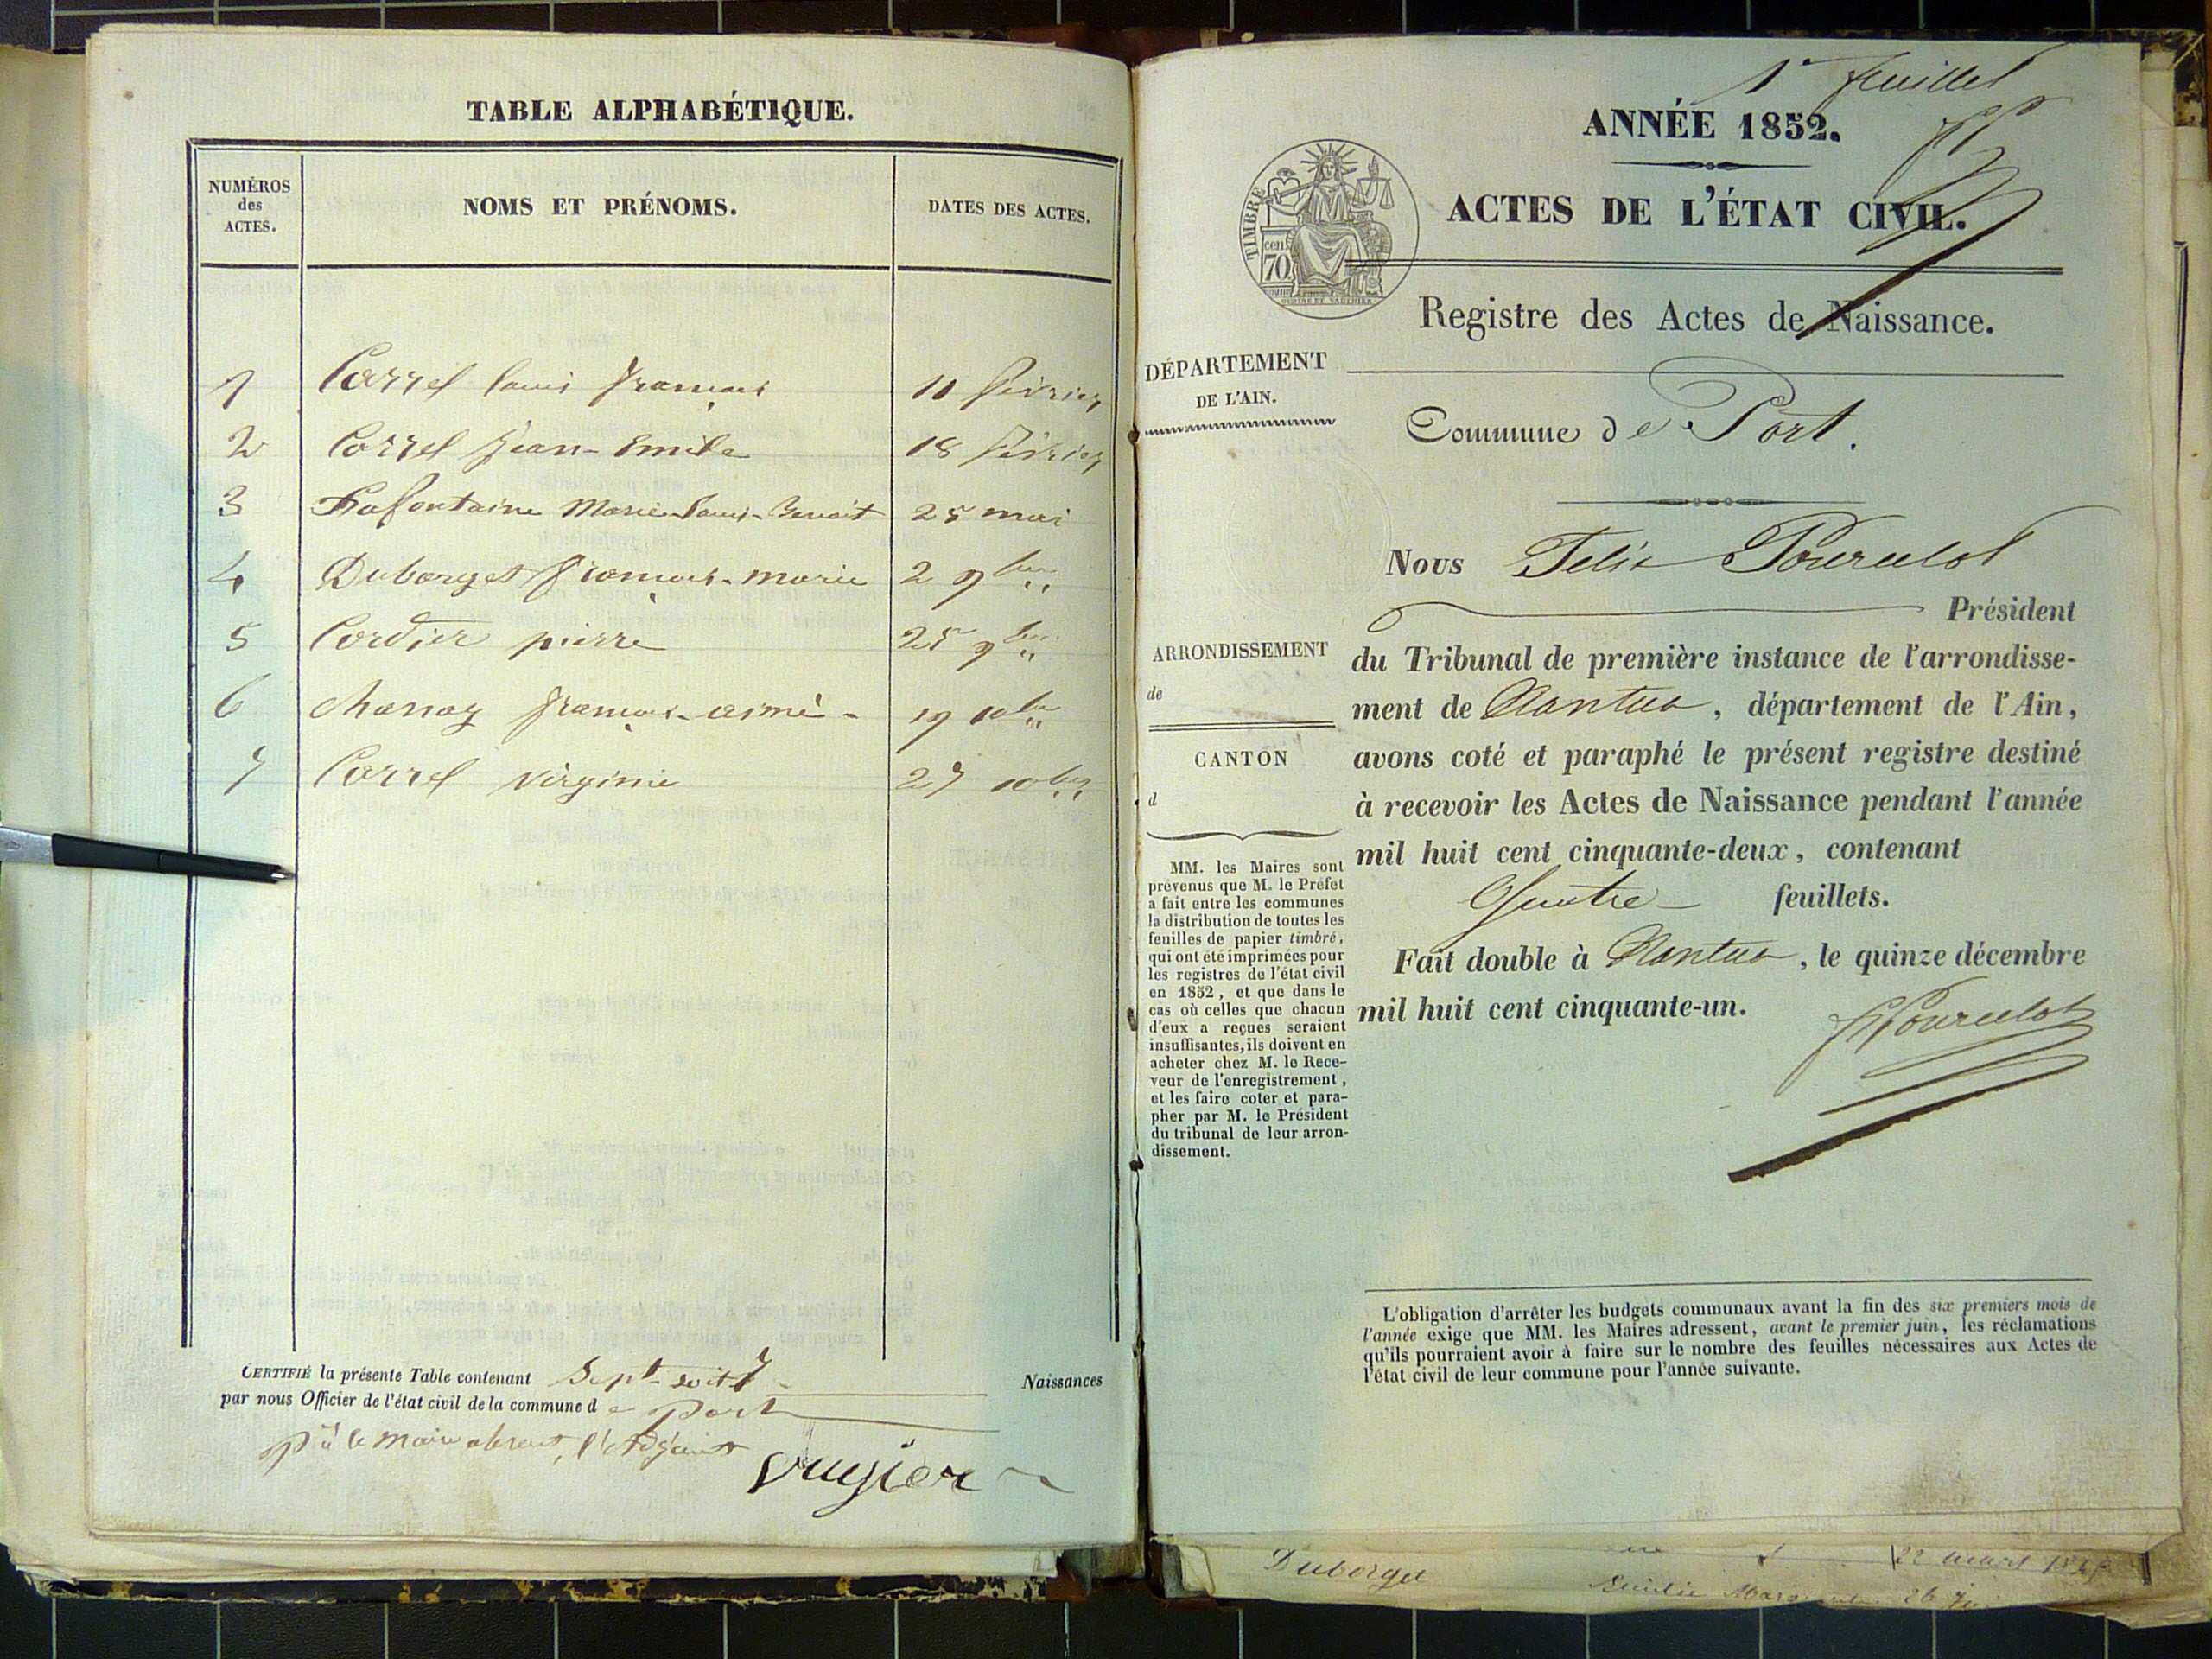 TABLE ALPHABÉTIQUE.
NUMÉROS des ACTES. NOMS ET PRÉNOMS. DATES DES ACTES.
1 Carrel Louis François 11 février
2 Carrel Jean-Emile 18 février
3 Lafontaine Marie-Louis-Benoit 25 mai
4 Duborget François-marie 2 9bre
5 Cordier pierre 25 9bre
6 françois-aimé 19 10bre
7 Carrel virginie 27 10bre
CERTIFIÉ la présente Table contenant Sept soit 7 Naissances
par nous Officier de l'état civil de la commune de Port
le Maire absent, l'Adjoint
1er feuillet
ANNÉE 1852.
TIMBRE
70 cen
ACTES DE L'ÉTAT CIVIL.
Registre des Actes de Naissance.
DÉPARTEMENT
DE L'AIN.
Commune de Port.
Nous Félix Pourcelot
Président
ARRONDISSEMENT
de
CANTON
d
du Tribunal de première instance de l'arrondisse-
ment de Nantua, département de l'Ain,
avons coté et paraphé le présent registre destiné
à recevoir les Actes de Naissance pendant l'année
mil huit cent cinquante-deux, contenant
Quatre feuillets.
Fait double à Nantua, le quinze décembre
mil huit cent cinquante-un.
Pourcelot
MM. les Maires sont
prévenus que M. le Préfet
a fait entre les communes
la distribution de toutes les
feuilles de papier timbré,
qui ont été imprimées pour
les registres de l'état civil
en 1852, et que dans le
cas où celles que chacun
d'eux a reçues seraient
insuffisantes, ils doivent en
acheter chez M. le Rece-
veur de l'enregistrement,
et les faire coter et para-
pher par M. le Président
du tribunal de leur arron-
dissement.
L'obligation d'arrêter les budgets communaux avant la fin des six premiers mois de
l'année exige que MM. les Maires adressent, avant le premier juin, les réclamations
qu'ils pourraient avoir à faire sur le nombre des feuilles nécessaires aux Actes de
l'état civil de leur commune pour l'année suivante.
Duborget 22 mars